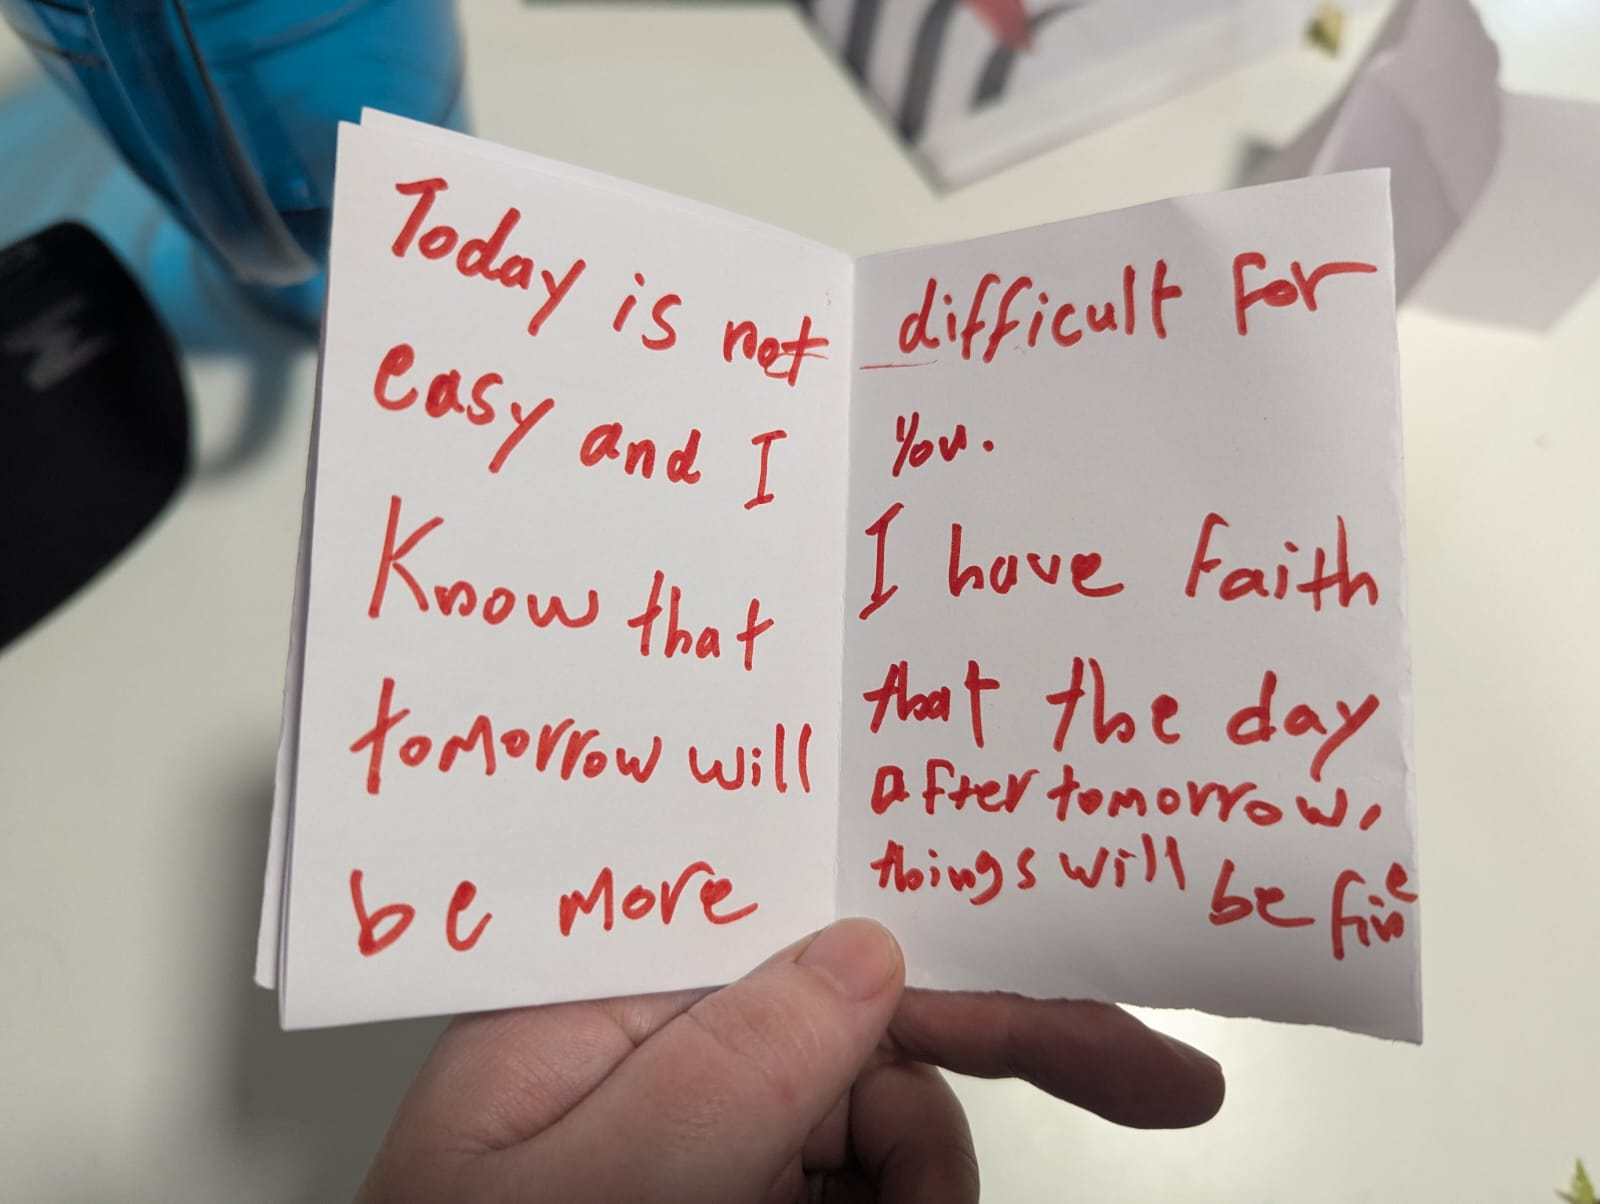 Today is not
easy and I
Know that
tomorrow will
be more
difficult for
you.
I have faith
that the day
after tomorrow,
things will be fine